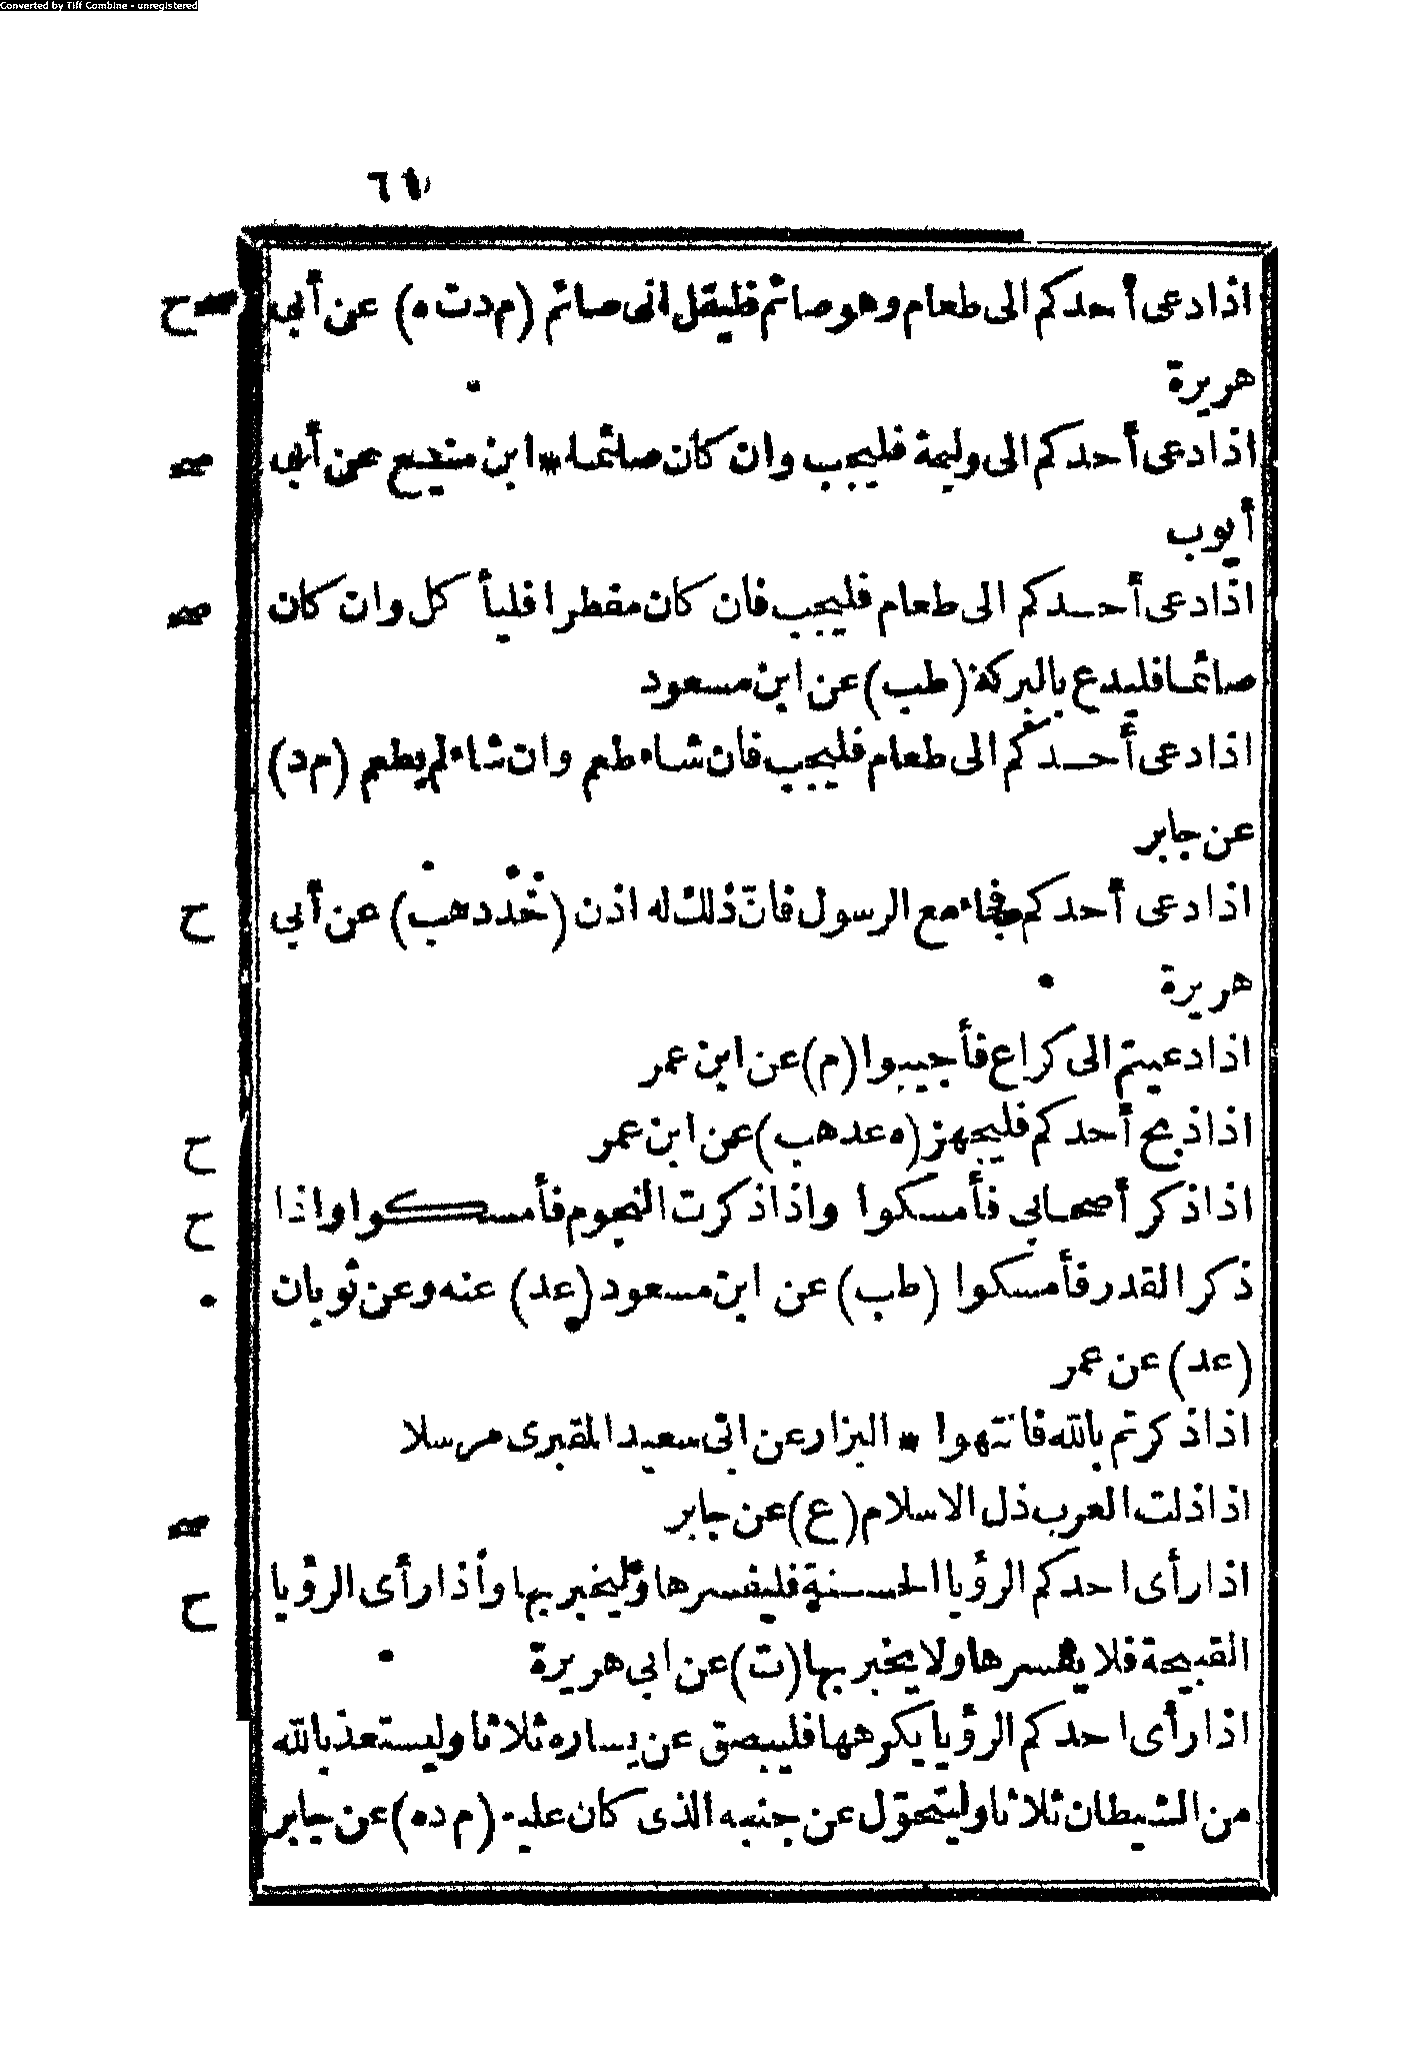 Converted by Tiff Combine - unregistered
اذا دعى أحدكم الى طعام وهو صائم فليقل انى صائم (م د ت ه) عن أبى صح
هريرة
اذا دعى أحدكم الى وليمة فليجب وان كان صائما * ابن منيع عن أبى صح
أيوب
اذا دعى أحدكم الى طعام فليجب فان كان مفطرا فليأ كل وان كان صح
صائما فليدع بالبركة (طب) عن ابن مسعود
اذا دعى أحدكم الى طعام فليجب فان شاء طعم وان شاء لم يطعم (م د)
عن جابر
اذا دعى أحدكم فجاء مع الرسول فانّ ذلك له اذن (خد د هب) عن أبي ح
هريرة
اذا دعيتم الى كراع فأجيبوا (م) عن ابن عمر
اذا ذبح أحدكم فليجهز (ه عد هب) عن ابن عمر ح
اذا ذكر أصحابي فأمسكوا واذا ذكرت النجوم فأمسكوا واذا ح
ذكر القدر فأمسكوا (طب) عن ابن مسعود (عد) عنه وعن ثوبان
(عد) عن عمر
اذا ذكرتم بالله فانتهوا * البزار عن ابى سعيد المقبرى مرسلا
اذا ذلت العرب ذل الاسلام (ع) عن جابر صح
اذا رأى احدكم الرؤيا الحسنة فليفسرها وليخبر بها واذا رأى الرؤيا ح
القبيحة فلا يفسرها ولا يخبر بها (ت) عن ابى هريرة
اذا رأى احدكم الرؤيا يكرهها فليبصق عن يساره ثلاثا وليستعذ بالله
من الشيطان ثلاثا وليتحوّل عن جنبه الذى كان عليه (م د ه) عن جابر